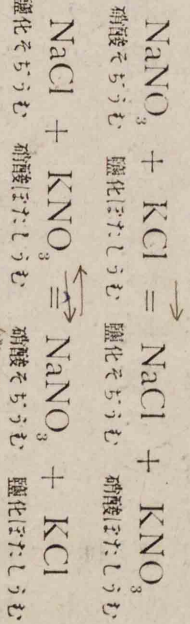 NaNO₃ + KCl = NaCl + KNO₃
硝酸そぢうむ 鹽化ぽたしうむ 鹽化そぢうむ 硝酸ぽたしうむ
NaCl + KNO₃ = NaNO₃ + KCl
鹽化そぢうむ 硝酸ぽたしうむ 硝酸そぢうむ 鹽化ぽたしうむ